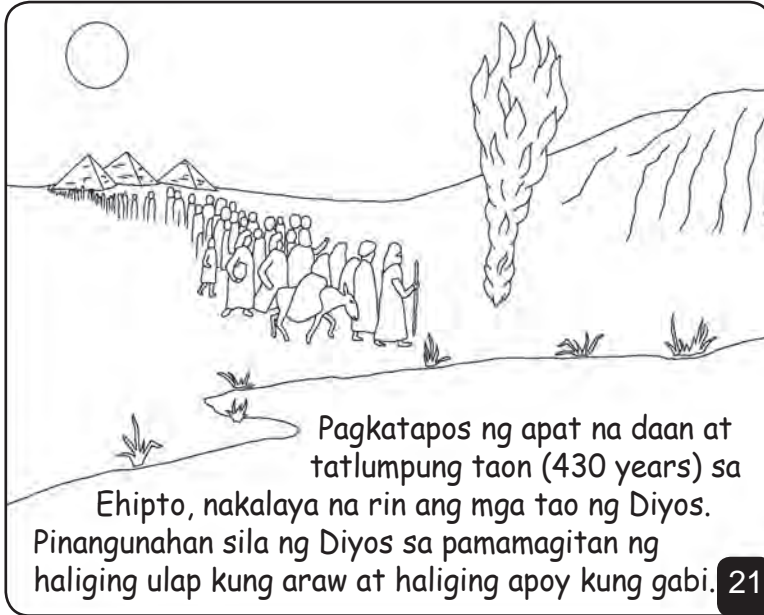 Pagkatapos ng apat na daan at
tatlumpung taon (430 years) sa
Ehipto, nakalaya na rin ang mga tao ng Diyos.
Pinangunahan sila ng Diyos sa pamamagitan ng
haliging ulap kung araw at haliging apoy kung gabi.
21